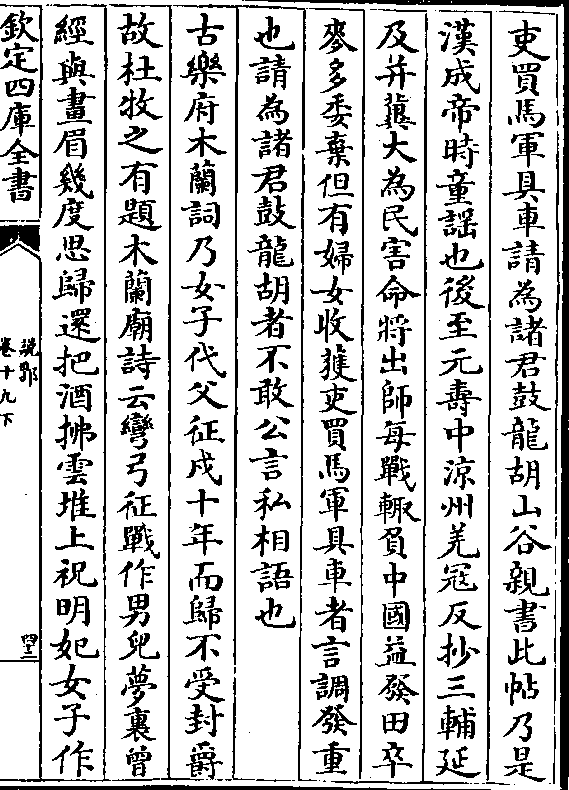 吏買馬軍具車請為諸君鼓龍胡山谷親書此帖乃是
漢成帝時童謡也後至元壽中涼州羌冦反抄三輔延
及并冀大為民害命將出師每戰輙負中國益發田卒
麥多委棄但有婦女收穫吏買馬軍具車者言調發重
也請為諸君鼓龍胡者不敢公言私相語也
古樂府木蘭詞乃女子代父征戍十年而歸不受封爵
故杜牧之有題木蘭廟詩云彎弓征戰作男兒夢裏曾
經與畫眉幾度思歸還把酒拂雲堆上祝明妃女子作
欽定四庫全書
說郛
卷十九下
四三